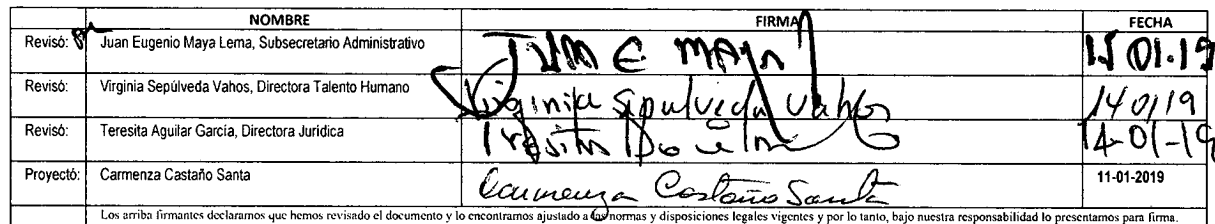 NOMBRE FIRMA FECHA
Revisó: Juan Eugenio Maya Lema, Subsecretario Administrativo JUAN E MAYA 15 01.19
Revisó: Virginia Sepúlveda Vahos, Directora Talento Humano Virginia Sepulveda Vahos 14 01 19
Revisó: Teresita Aguilar García, Directora Jurídica Teresita 14-01-19
Proyectó: Carmenza Castaño Santa Carmenza Castaño Santa 11-01-2019
Los arriba firmantes declaramos que hemos revisado el documento y lo encontramos ajustado a las normas y disposiciones legales vigentes y por lo tanto, bajo nuestra responsabilidad lo presentamos para firma.